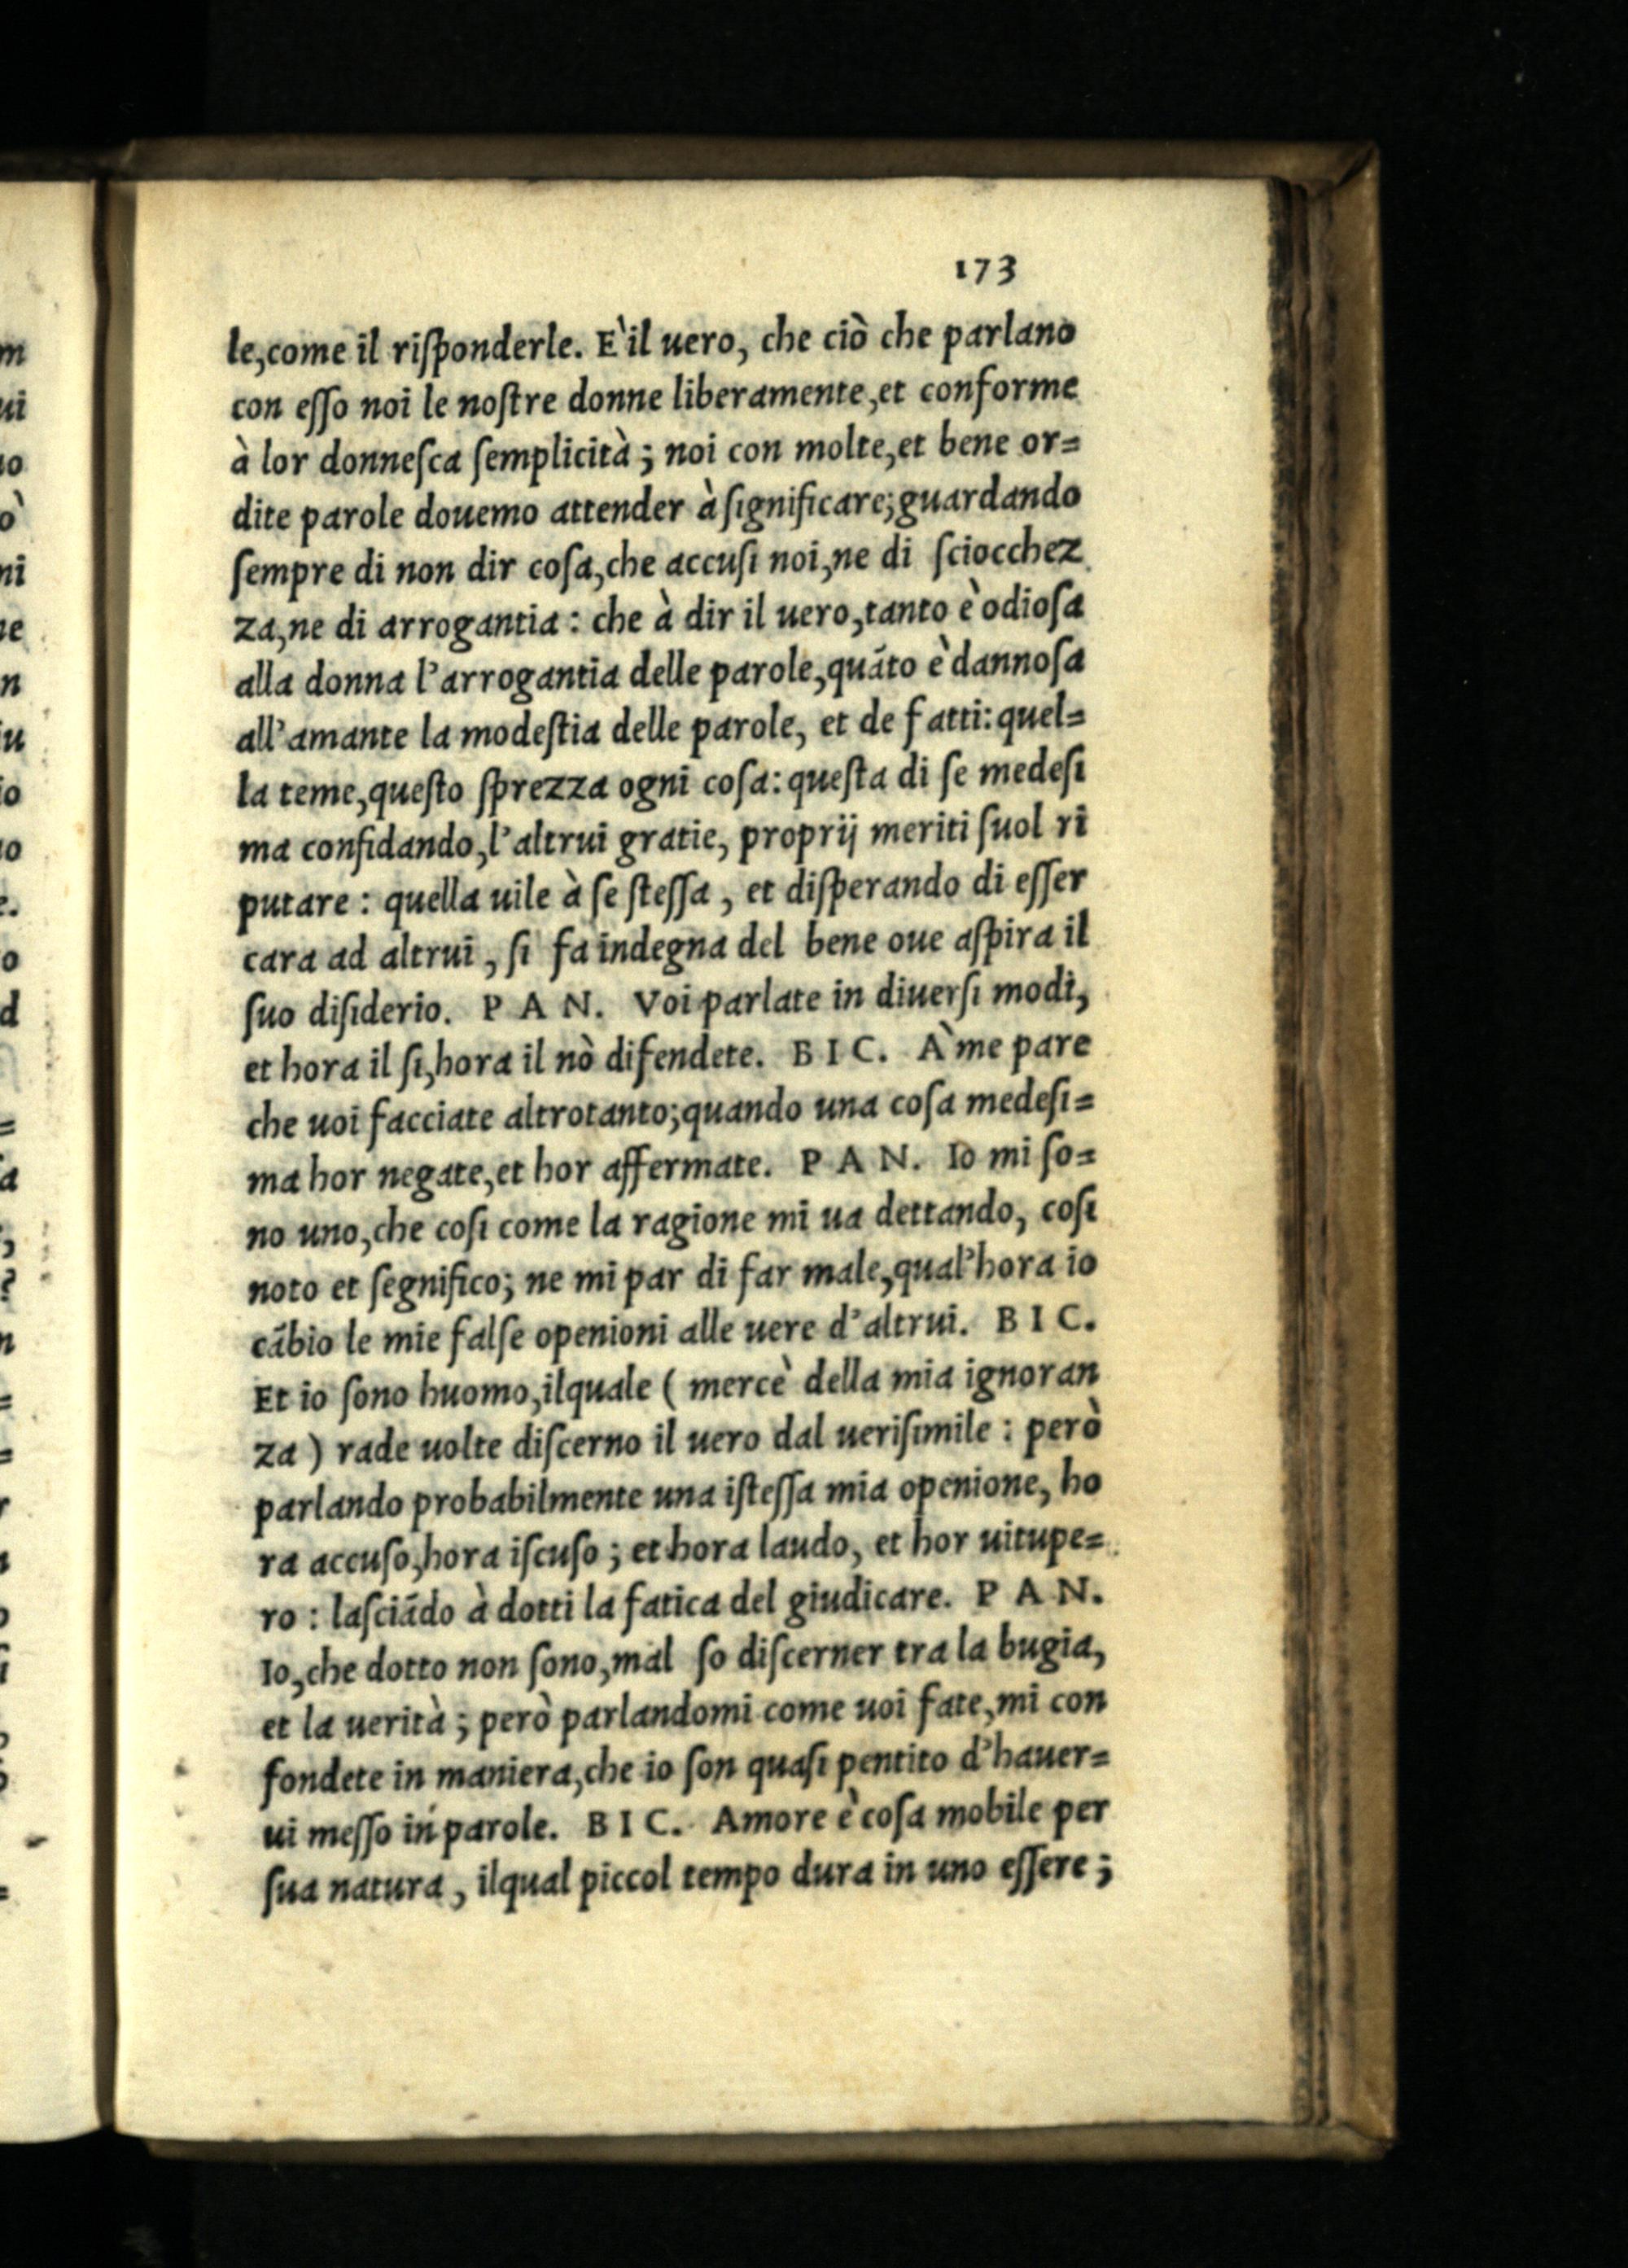 173
le,come il riſponderle. E' il uero, che ciò che parlano
con eſſo noi le noſtre donne liberamente,et conforme
à lor donneſca ſemplicità; noi con molte,et bene or=
dite parole douemo attender à ſignificare;guardando
ſempre di non dir coſa,che accuſi noi,ne di ſciocchez
za,ne di arrogantia: che à dir il uero,tanto è odioſa
alla donna l'arrogantia delle parole,quāto è dannoſa
all'amante la modeſtia delle parole, et de fatti: quel=
la teme,queſto ſprezza ogni coſa: queſta di ſe medeſi
ma confidando,l'altrui gratie, proprij meriti ſuol ri
putare: quella uile à ſe ſteſſa, et diſperando di eſſer
cara ad altrui, ſi fa indegna del bene oue aſpira il
ſuo diſiderio. PAN. Voi parlate in diuerſi modi,
et hora il ſi,hora il nò difendete. BIC. A' me pare
che uoi facciate altrotanto;quando una coſa medeſi=
ma hor negate,et hor affermate. PAN. Io mi ſo=
no uno,che coſi come la ragione mi ua dettando, coſi
noto et ſegnifico; ne mi par di far male,qual'hora io
cābio le mie falſe openioni alle uere d'altrui. BIC.
Et io ſono huomo,ilquale ( mercè della mia ignoran
za ) rade uolte diſcerno il uero dal ueriſimile: però
parlando probabilmente una iſteſſa mia openione, ho
ra accuſo,hora iſcuſo; et hora laudo, et hor uitupe=
ro: laſciādo à dotti la fatica del giudicare. PAN.
Io,che dotto non ſono,mal ſo diſcerner tra la bugia,
et la uerità; però parlandomi come uoi fate,mi con
fondete in maniera,che io ſon quaſi pentito d'hauer=
ui meſſo in parole. BIC. Amore è coſa mobile per
ſua natura, ilqual piccol tempo dura in uno eſſere;